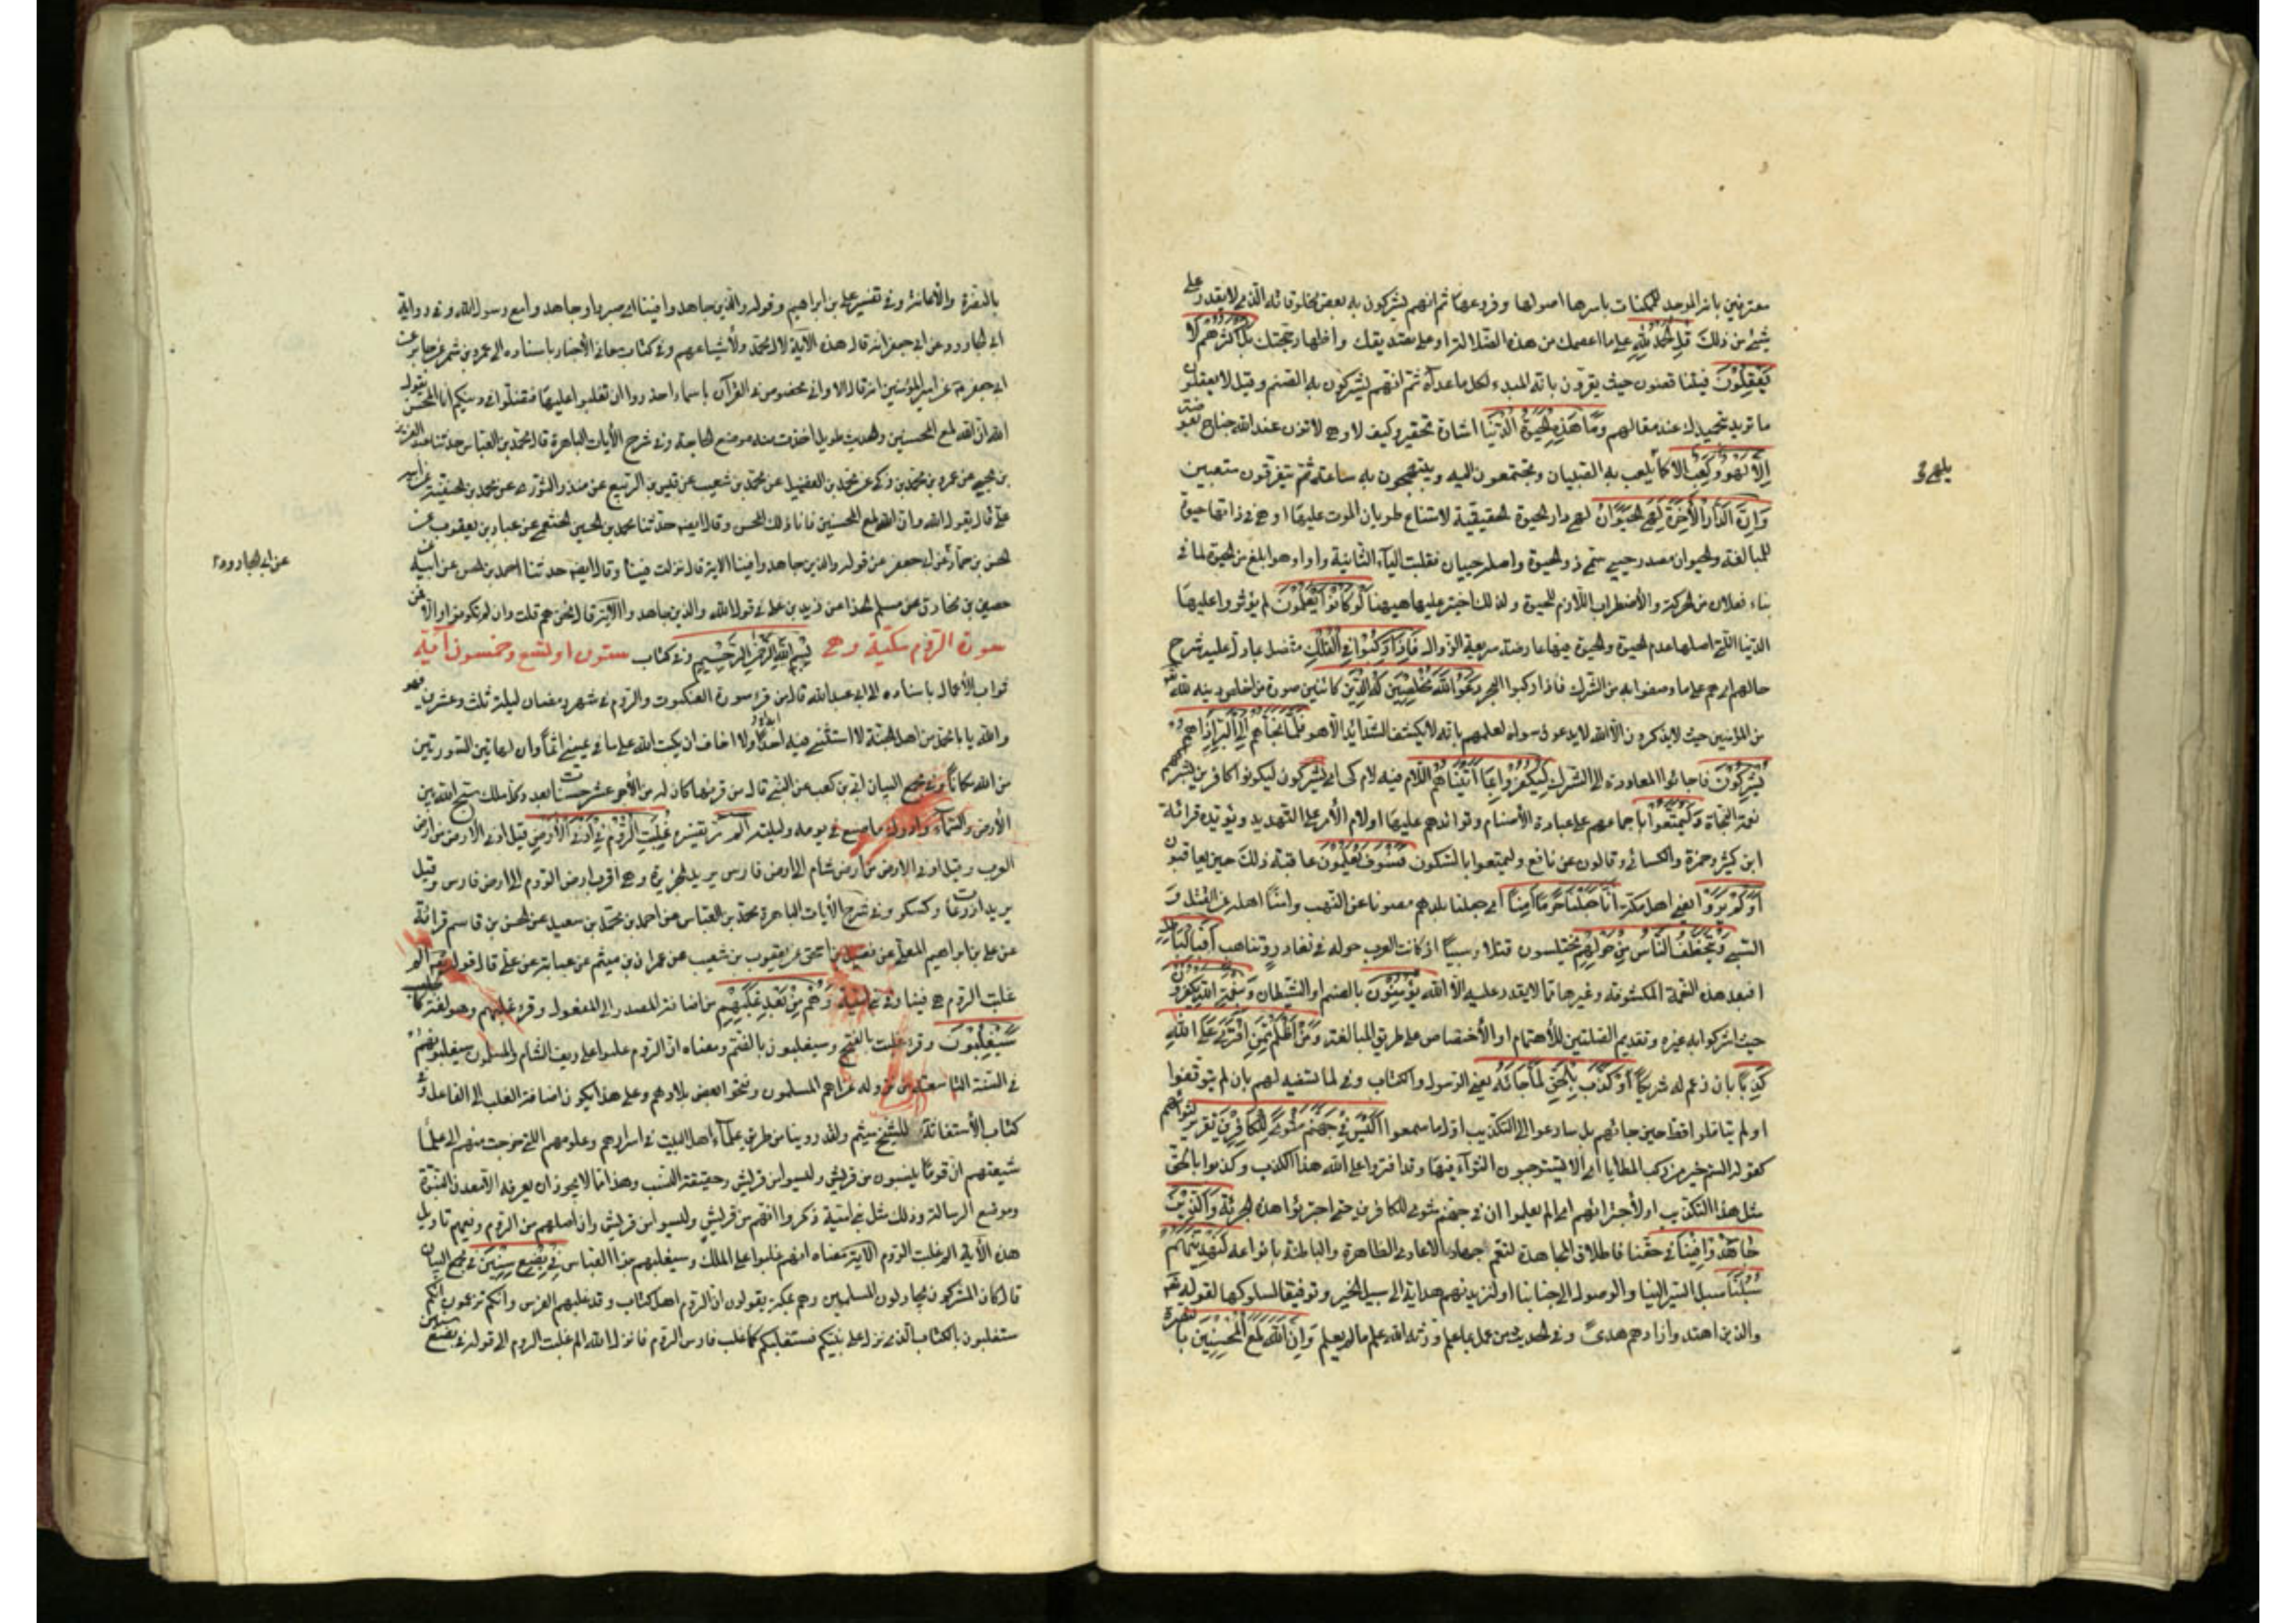 معترفين بانه الموجد للممكنات باسرها اصولها وفروعها ثم انهم يشركون به بعض مخلوقاته الذى لا يقدر على
شىء من ذلك قل الحمد لله على ما اعصمك من هذه الضلالة او على تصديقك واظهار حجتك بل اكثرهم لا
يعقلون فيتناقضون حيث يقرون بانه المبدء لكل ما عداه ثم انهم يشركون به الصنم وقيل لا يعقلون
ما تريد بتحميدك عند مقالهم وما هذه الحيوة الدنيا اشارة تحقير وكيف لا وهى لا تزن عند الله جناح بعوضة
الا لهو ولعب الا كما يلعب به الصبيان ويجتمعون اليه ويبتهجون به ساعة ثم يتفرقون متعبين
يلهى
وان الدار الاخرة لهى الحيوان لهى دار الحيوة الحقيقية لامتناع طريان الموت عليها او هى فى ذاتها حيوة
للمبالغة والحيوان مصدر حيى سمى ذو الحيوة واصله حييان فقلبت الياء الثانية واوا وهو ابلغ من الحيوة لما فى
بناء فعلان من الحركة والاضطراب اللازم للحيوة ولذلك اختير عليها هيهنا لو كانوا يعلمون لم يؤثروا عليها
الدنيا التى اصلها عدم الحيوة والحيوة فيها عارضة سريعة الزوال فاذا ركبوا فى الفلك متصل بما دل عليه شرح
حالهم اى هم على ما وصفوا به من الشرك فاذا ركبوا البحر دعوا الله مخلصين له الدين كائنين صورة من اخلص دينه لله
من المؤمنين حيث لا يذكرون الا الله لا يدعون سواه لعلمهم بانه لا يكشف الشدائد الا هو فلما نجاهم الى البر اذا هم
يشركون فاجائوا المعاودة الى الشرك ليكفروا بما اتيناهم اللام فيه لام كى اى يشركون ليكونوا كافرين بشركهم
نعمة النجاة وليتمتعوا باجماعهم على عبادة الأصنام وتوادهم عليها او لام الأمر على التهديد ويؤيده قرائة
ابن كثير وحمزة والكسائى وقالون عن نافع وليتمتعوا بالسكون فسوف يعلمون عاقبة ذلك حين يعاقبون
اولم يروا يعنى اهل مكة انا جعلنا حرما آمنا اى جعلنا بلدهم مصونا عن النهب وامنا اهله عن القتل و
السبى ويتخطف الناس من حولهم يختلسون قتلا وسبيا اذ كانت العرب حوله فى تغاور وتناهب افبالباطل
افبعد هذه النعمة المكشوفة وغيرها مما لا يقدر عليه الا الله يؤمنون بالصنم او الشيطان وبنعمة الله يكفرون
حيث اشركوا به غيره وتقديم الصلتين للأهتمام او الأختصاص على طريق المبالغة ومن اظلم ممن افترى على الله
كذبا بان زعم له شريكا او كذب بالحق لما جائه يعنى الرسول والكتاب وفى لما تسفيه لهم بان لم يتوقفوا
او لم يتاملوا قط حين جائهم بل سارعوا الى التكذيب اول ما سمعوا اليس فى جهنم مثوى للكافرين تقرير لثوائهم
كقوله الستم خير من ركب المطايا اى الا يستوجبون الثواء فيها وقد افتروا على الله هذا الكذب وكذبوا بالحق
مثل هذا التكذيب او لأجترائهم اى الم يعلموا ان فى جهنم مثوى للكافرين حتى اجترؤا هذه الجرئة والذين
جاهدوا فينا فى حقنا فاطلاق المجاهدة لتعم جهاد الاعادى الظاهرة والباطنة بانواعه لنهدينهم
سبلنا سبل السير الينا والوصول الى جنابنا او لنزيدنهم هداية الى سبيل الخير وتوفيقا لسلوكها لقوله تعم
والذين اهتدوا زادهم هدى وفى الحديث من عمل بما علم ورثه الله علم ما لم يعلم وان الله لمع المحسنين بالنصرة
بالنصرة والأعانة وفى تفسير على بن ابراهيم وقوله والذين جاهدوا فينا اى صبروا وجاهدوا مع رسول الله وفى رواية
ابى الجارود عن ابى جعفر انه قال هذه الآية لآل محمد ولأشياعهم وفى كتاب معانى الأخبار باسناده الى عمرو بن شمر عن جابر عن
ابى جعفر عن امير المؤمنين انه قال الا وانى مخصوص فى القرآن باسماء احذروا ان تغلبوا عليها فتضلوا فى دينكم انا المحسن يقول
الله ان الله لمع المحسنين والحديث طويل اخذت منه موضع الحاجة وفى شرح الأيات الباهرة قال محمد بن العباس حدثنا عبد العزيز
بن يحيى عن عمرو بن محمد بن زكى عن محمد بن الفضيل عن محمد بن شعيب عن قيس بن الربيع عن منذر الثورى عن محمد بن الحنفية عن ابيه
على قال يقول الله وان الله لمع المحسنين فانا ذلك المحسن وقال ايضا حدثنا محمد بن الحسين الخثعمى عن عباد بن يعقوب عن
الحسن بن حماد عن ابى جعفر عن قوله والذين جاهدوا فينا الاية قال نزلت فينا وقال ايضا حدثنا احمد بن الحسن عن ابيه عن
عن ابى الجارود
حصين بن مخارق عن مسلم الحذا عن زيد بن على فى قول الله والذين جاهدوا الآية قال نحن هم قلت وان لم تكونوا والا فمن
سورة الروم مكية وهى بسم الله الرحمن الرحيم وفى كتاب ستون او تسع وخمسون آية
ثواب الأعمال باسناده الى ابى عبد الله قال من قرء سورة العنكبوت والروم فى شهر رمضان ليلة ثلث وعشرين فهو
والله يا با محمد من اهل الجنة لا استثنى فيه ابدا ولا اخاف ان يكتب الله على ما فى يمينى اثما وان لهاتين السورتين
من الله مكانا وفى مجمع البيان ابى بن كعب عن النبى قال من قرئها كان له من الأجر عشر حسنات بعدد كل ملك سبح الله بين
الأرض والسماء وادرك ما ضيع فى يومه وليلته الم مر تفسيره غلبت الروم فى ادنى الأرض قيل ادنى الارض من ارض
العرب وقيل ادنى الارض من ارض شام الى ارض فارس يريد الجزيرة وهى اقرب ارض الروم الى ارض فارس وقيل
يريد اذرعات وكسكر وفى شرح الأيات الباهرة محمد بن العباس عن احمد بن محمد بن سعيد عن الحسن بن قاسم قرائة
عن على بن ابراهيم المعلى عن فضيل بن اسحق عن يعقوب بن شعيب عن عمران بن ميثم عن عباية عن على قال قوله تعم الم
غلبت الروم هى فينا وفى بنى امية وهم من بعد غلبهم من اضافة المصدر الى المفعول وقرء غلبهم وهو لغة كالحلب
سيغلبون وقرء غلبت بالفتح وسيغلبون بالضم ومعناه ان الروم غلبوا على ريف الشام والمسلمون سيغلبونهم
فى السنة التاسعة من نزوله غزاهم المسلمون وفتحوا بعض بلادهم وعلى هذا يكون اضافة الغلب الى الفاعل وفى
كتاب الأستغاثة للشيخ ميثم ولقد روينا من طريق علماء اهل البيت فى اسرارهم وعلومهم التى خرجت منهم الى علماء
شيعتهم ان قوما ينسبون من قريش وليسوا من قريش وحقيقة النسب وهذا مما لا يجوز ان يعرفه الا معدن النبوة
وموضع الرسالة وذلك مثل بنى امية ذكروا انهم من قريش وليسوا من قريش وان اصلهم من الروم وفيهم تاويل
هذه الأية الم غلبت الروم الاية معناه انهم غلبوا على الملك وسيغلبهم بنوا العباس فى بضع سنين فى مجمع البيان
قال كان المشركون يجادلون المسلمين وهم بمكة يقولون ان الروم اهل كتاب وقد غلبهم الفرس وانكم تزعمون انكم
ستغلبون بالكتاب الذى نزل على نبيكم فسنغلبكم كما غلب فارس الروم فانزل الله الم غلبت الروم الى قوله فى بضع سنين